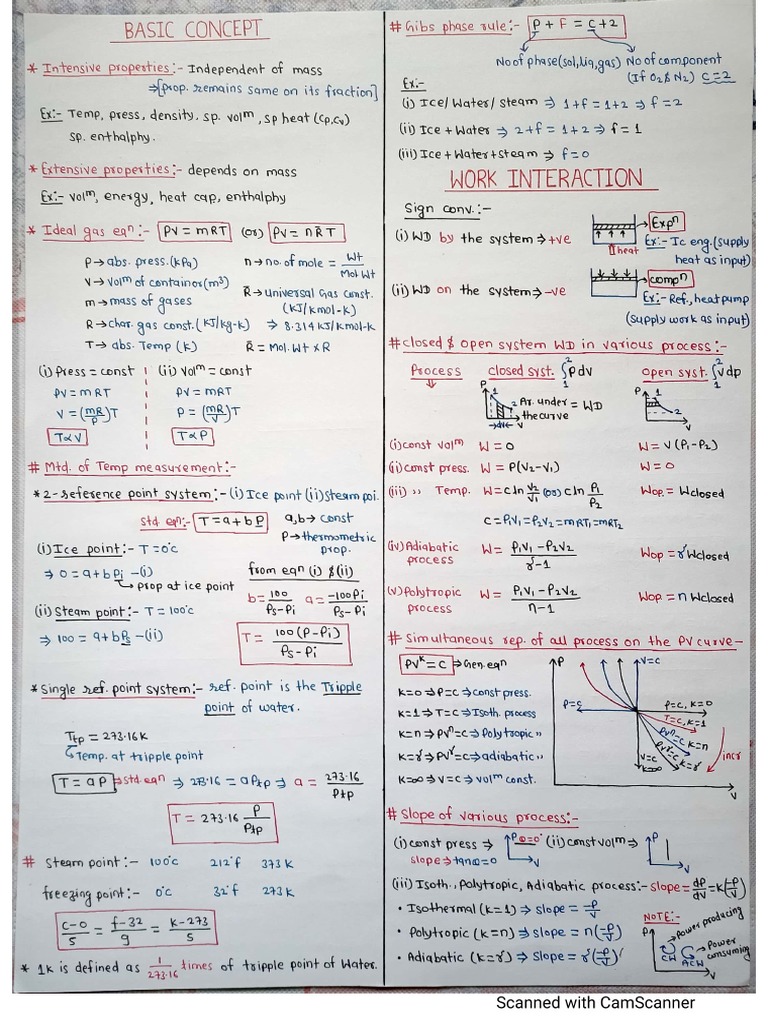 BASIC CONCEPT
* Intensive properties:- Independent of mass
⇒[prop. remains same on its fraction]
Ex:- Temp, press, density, sp. volᵐ, sp heat (Cp,Cv)
sp. enthalphy.
* Extensive properties:- depends on mass
Ex:- volᵐ, energy, heat cap, enthalphy
* Ideal gas eqⁿ:- PV = mRT (or) PV = nR̄T
P → abs. press. (kPa)
V → volᵐ of containor (m³)
m → mass of gases
R → char. gas const. (KJ/kg-k)
T → abs. Temp (K)
n → no. of mole = Wt/Mol Wt
R̄ → universal Gas const.
(KJ/kmol-k)
⇒ 8.314 KJ/kmol-k
R̄ = Mol. Wt x R
(i) Press = const
PV = mRT
V = (mR/P)T
T∝V
(ii) Volᵐ = const
PV = mRT
P = (mR/V)T
T∝P
# Mtd. of Temp measurement:-
* 2-reference point system:- (i) Ice point (ii) steam poi.
std eqⁿ:- T = a+bP
a,b → const
P → thermometric
prop.
(i) Ice point:- T = 0°c
⇒ 0 = a+bPi -(i)
prop at ice point
(ii) Steam point:- T = 100°c
⇒ 100 = a+bPs -(ii)
from eqⁿ (i) & (ii)
b = 100/Ps-Pi a = -100Pi/Ps-Pi
T = 100(P-Pi)/Ps-Pi
* Single ref. point system:- ref. point is the Tripple
point of water.
Ttp = 273.16K
Temp. at tripple point
T = aP ⇒ std. eqⁿ ⇒ 273.16 = aPtp ⇒ a = 273.16/Ptp
T = 273.16 P/Ptp
# Steam point:- 100°c 212°f 373K
freezing point:- 0°c 32°f 273K
C-0/5 = f-32/9 = K-273/5
* 1K is defined as 1/273.16 times of tripple point of Water.
# Gibs phase rule:- P + F = C+2
No of phase (sol, liq, gas) No of component
(If O₂ & N₂) C=2
Ex:-
(i) Ice/Water/steam ⇒ 1+f = 1+2 ⇒ f = 2
(ii) Ice + Water ⇒ 2+f = 1+2 ⇒ f = 1
(iii) Ice + Water + steam ⇒ f = 0
WORK INTERACTION
Sign conv.:-
(i) WD by the system ⇒ +ve
heat
Expⁿ
Ex:- Ic eng. (supply
heat as input)
(ii) WD on the system ⇒ -ve
compⁿ
Ex:- Ref., heat pump
(supply work as input)
# closed & open system WD in various process:-
Process closed syst. ₁∫² pdv open syst. ₁∫² vdp
P 1 2 dV V
Ar. under = WD
the curve
P 1 2 V
(i) const volᵐ W = 0 W = V(P₁-P₂)
(i) const press. W = P(V₂-V₁) W = 0
(iii) ,, Temp. W = C ln V₂/V₁ (or) C ln P₁/P₂ Wop. = Wclosed
C = P₁V₁ = P₂V₂ = mRT₁ = mRT₂
(iv) Adiabatic process W = P₁V₁ - P₂V₂/γ-1 Wop = γ Wclosed
(v) Polytropic process W = P₁V₁ - P₂V₂/n-1 Wop = n Wclosed
# Simultaneous rep. of all process on the PV curve-
PVᵏ = C ⇒ Gen. eqn
K=0 ⇒ P=C ⇒ const press.
K=1 ⇒ T=C ⇒ Isoth. process
K=n ⇒ PVⁿ=C ⇒ Polytropic ,,
K=γ ⇒ PVᵞ=C ⇒ adiabatic ,,
K=∞ ⇒ V=C ⇒ volᵐ const.
P
V=C
P=C
P=C, K=0
T=C, K=1
PVⁿ=C, K=n
PVᵞ=C, K=γ
V=C
K=∞
incr
V
# Slope of various process:-
(i) const press ⇒ P θ=0° V (ii) const volᵐ ⇒ P V
slope ⇒ tanθ=0
(iii) Isoth., Polytropic, Adiabatic process:- slope = dP/dV = K(-P/V)
• Isothermal (K=1) ⇒ slope = -P/V
• Polytropic (K=n) ⇒ slope = n(-P/V)
• Adiabatic (K=γ) ⇒ slope = γ(-P/V)
NOTE:-
P
power producing
Power
consuming
CW ACW
V
Scanned with CamScanner